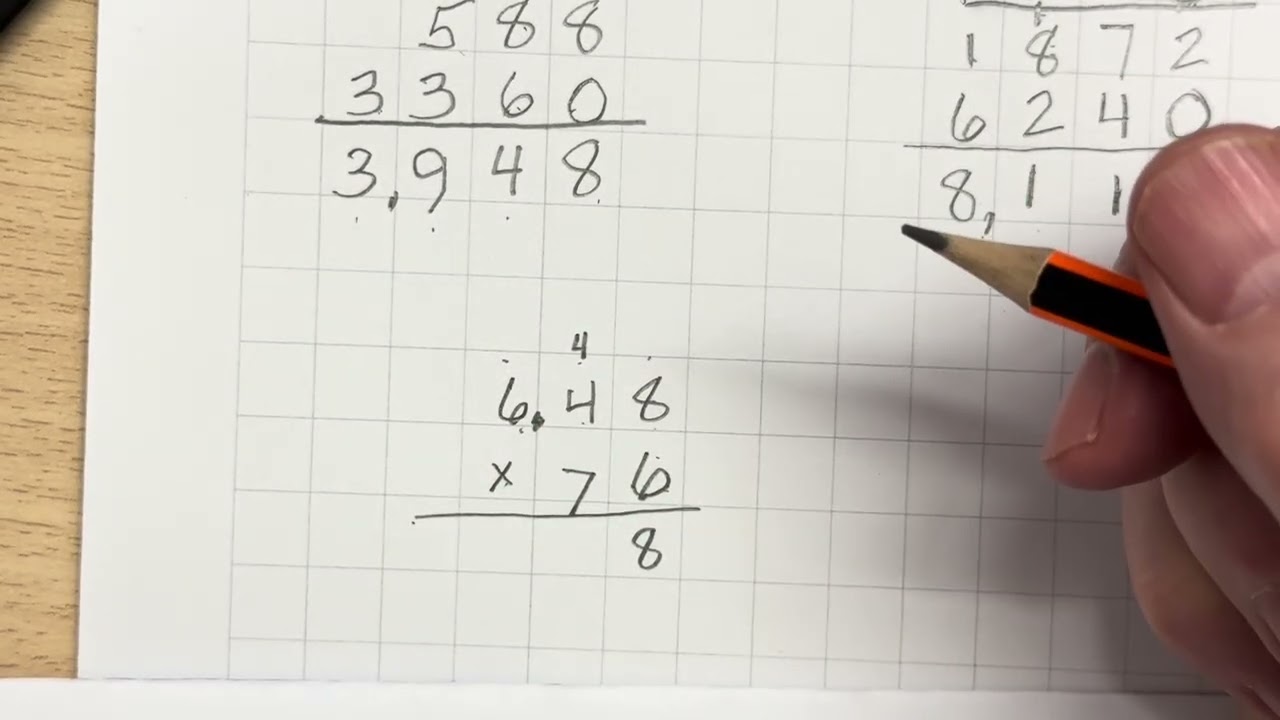 588
3360
3,948
1872
6240
8,11
4
6,48
x 76
8